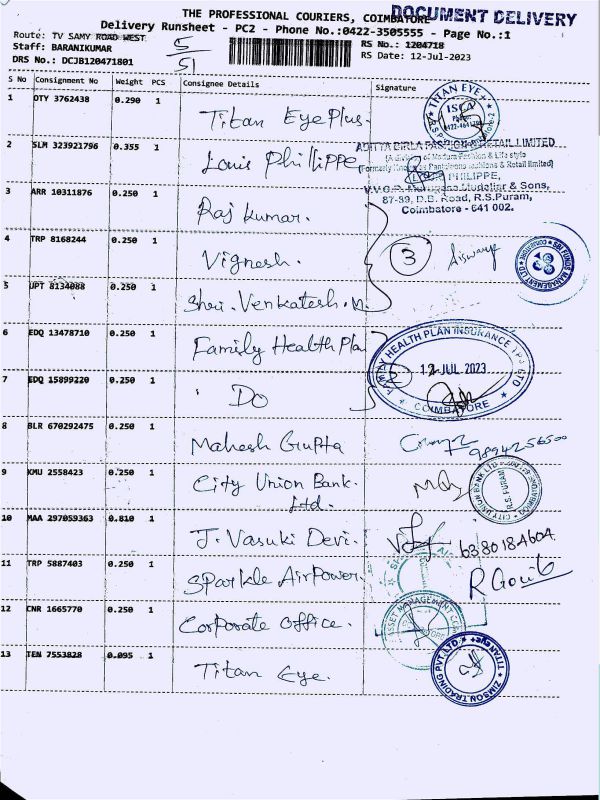 THE PROFESSIONAL COURIERS, COIMBATORE
DOCUMENT DELIVERY
Delivery Runsheet - PC2 - Phone No.:0422-3505555 - Page No.:1
Route: TV SAMY ROAD WEST
5/51
RS No.: 1204718
Staff: BARANIKUMAR
RS Date: 12-Jul-2023
DRS No.: DCJB120471801
S No Consignment No Weight PCS Consignee Details Signature
1 OTY 3762438 0.290 1 Titan Eye Plus.
TITAN EYE+
2 SLM 323921796 0.355 1 Louis Phillippe
ADITYA BIRLA FASHION & RETAIL LIMITED
(A division of Madura Fashion & Life style
(Formerly Known as Pantaloons Fashions & Retail limited)
LOUIS PHILIPPE,
V.V.C.R. Murugesa Mudaliar & Sons,
87-89, D.B. Road, R.S.Puram,
Coimbatore - 641 002.
3 ARR 10311876 0.250 1 Raj Kumar.
4 TRP 8168244 0.250 1 Vignesh.
3 Aiswarya
SBI FUNDS MANAGEMENT LTD COIMBATORE
5 UPT 8134088 0.250 1 Shri. Venkatesh. M.
6 EDQ 13478710 0.250 1 Family Health Pla
FAMILY HEALTH PLAN INSURANCE TPA LTD
12 JUL 2023
COIMBATORE
7 EDQ 15899220 0.250 1 " Do
2
8 BLR 670292475 0.250 1 Mahesh Gupta
9894256500
9 KMU 2558423 0.250 1 City Union Bank. Ltd.
CITY UNION BANK LTD
R.S. PURAM
10 MAA 297059363 0.810 1 J. Vasuki Devi.
6380184604
11 TRP 5887403 0.250 1 Sparkle AirPower.
R Gowri
12 CNR 1665770 0.250 1 Corporate office.
ASSET MANAGEMENT
13 TEN 7553828 0.095 1 Titan Eye.
ZIMSON TRADING PVT. LTD. TITAN eye+